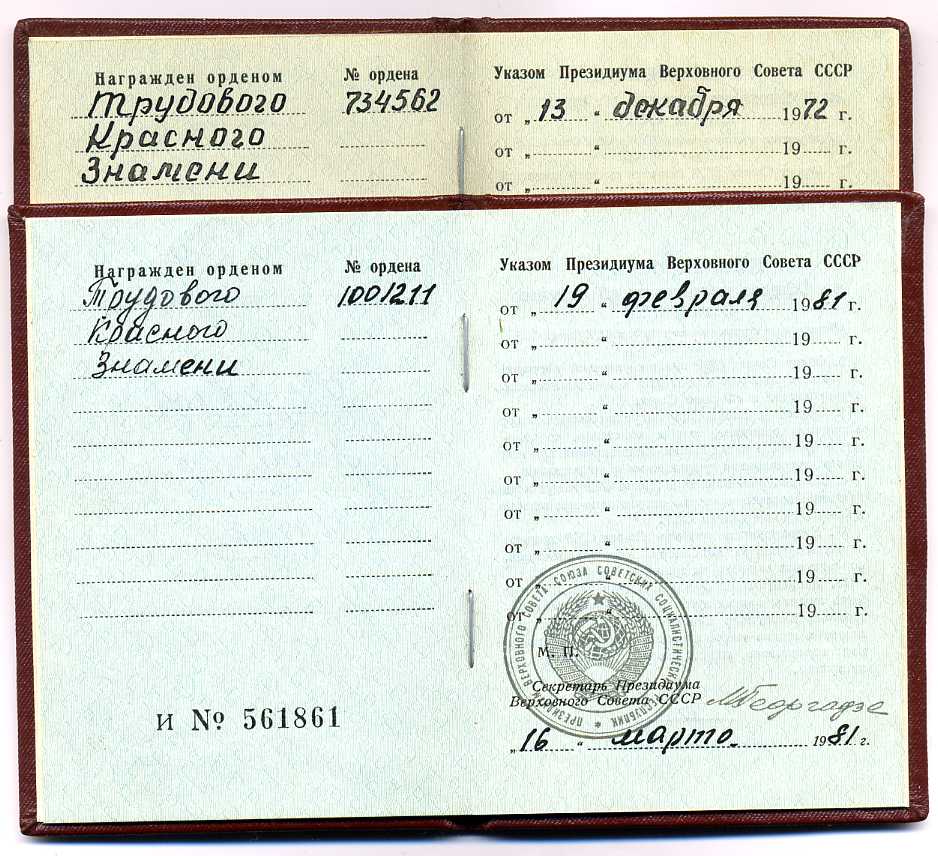 Награжден орденом № ордена Указом Президиума Верховного Совета СССР
Трудового 734562 от „ 13 “ декабря 1972 г.
Красного от „ “ 19 г.
Знамени от „ “ 19 г.
Награжден орденом № ордена Указом Президиума Верховного Совета СССР
Трудового 1001211 от „ 19 “ февраля 1981 г.
Красного от „ “ 19 г.
Знамени от „ “ 19 г.
от „ “ 19 г.
от „ “ 19 г.
от „ “ 19 г.
от „ “ 19 г.
от „ “ 19 г.
от „ “ 19 г.
от „ “ 19 г.
ПРЕЗИДИУМ ВЕРХОВНОГО СОВЕТА СОЮЗА СОВЕТСКИХ СОЦИАЛИСТИЧЕСКИХ РЕСПУБЛИК
М. П.
Секретарь Президиума
Верховного Совета СССР МГеоргадзе
И № 561861
„ 16 “ марта 1981 г.